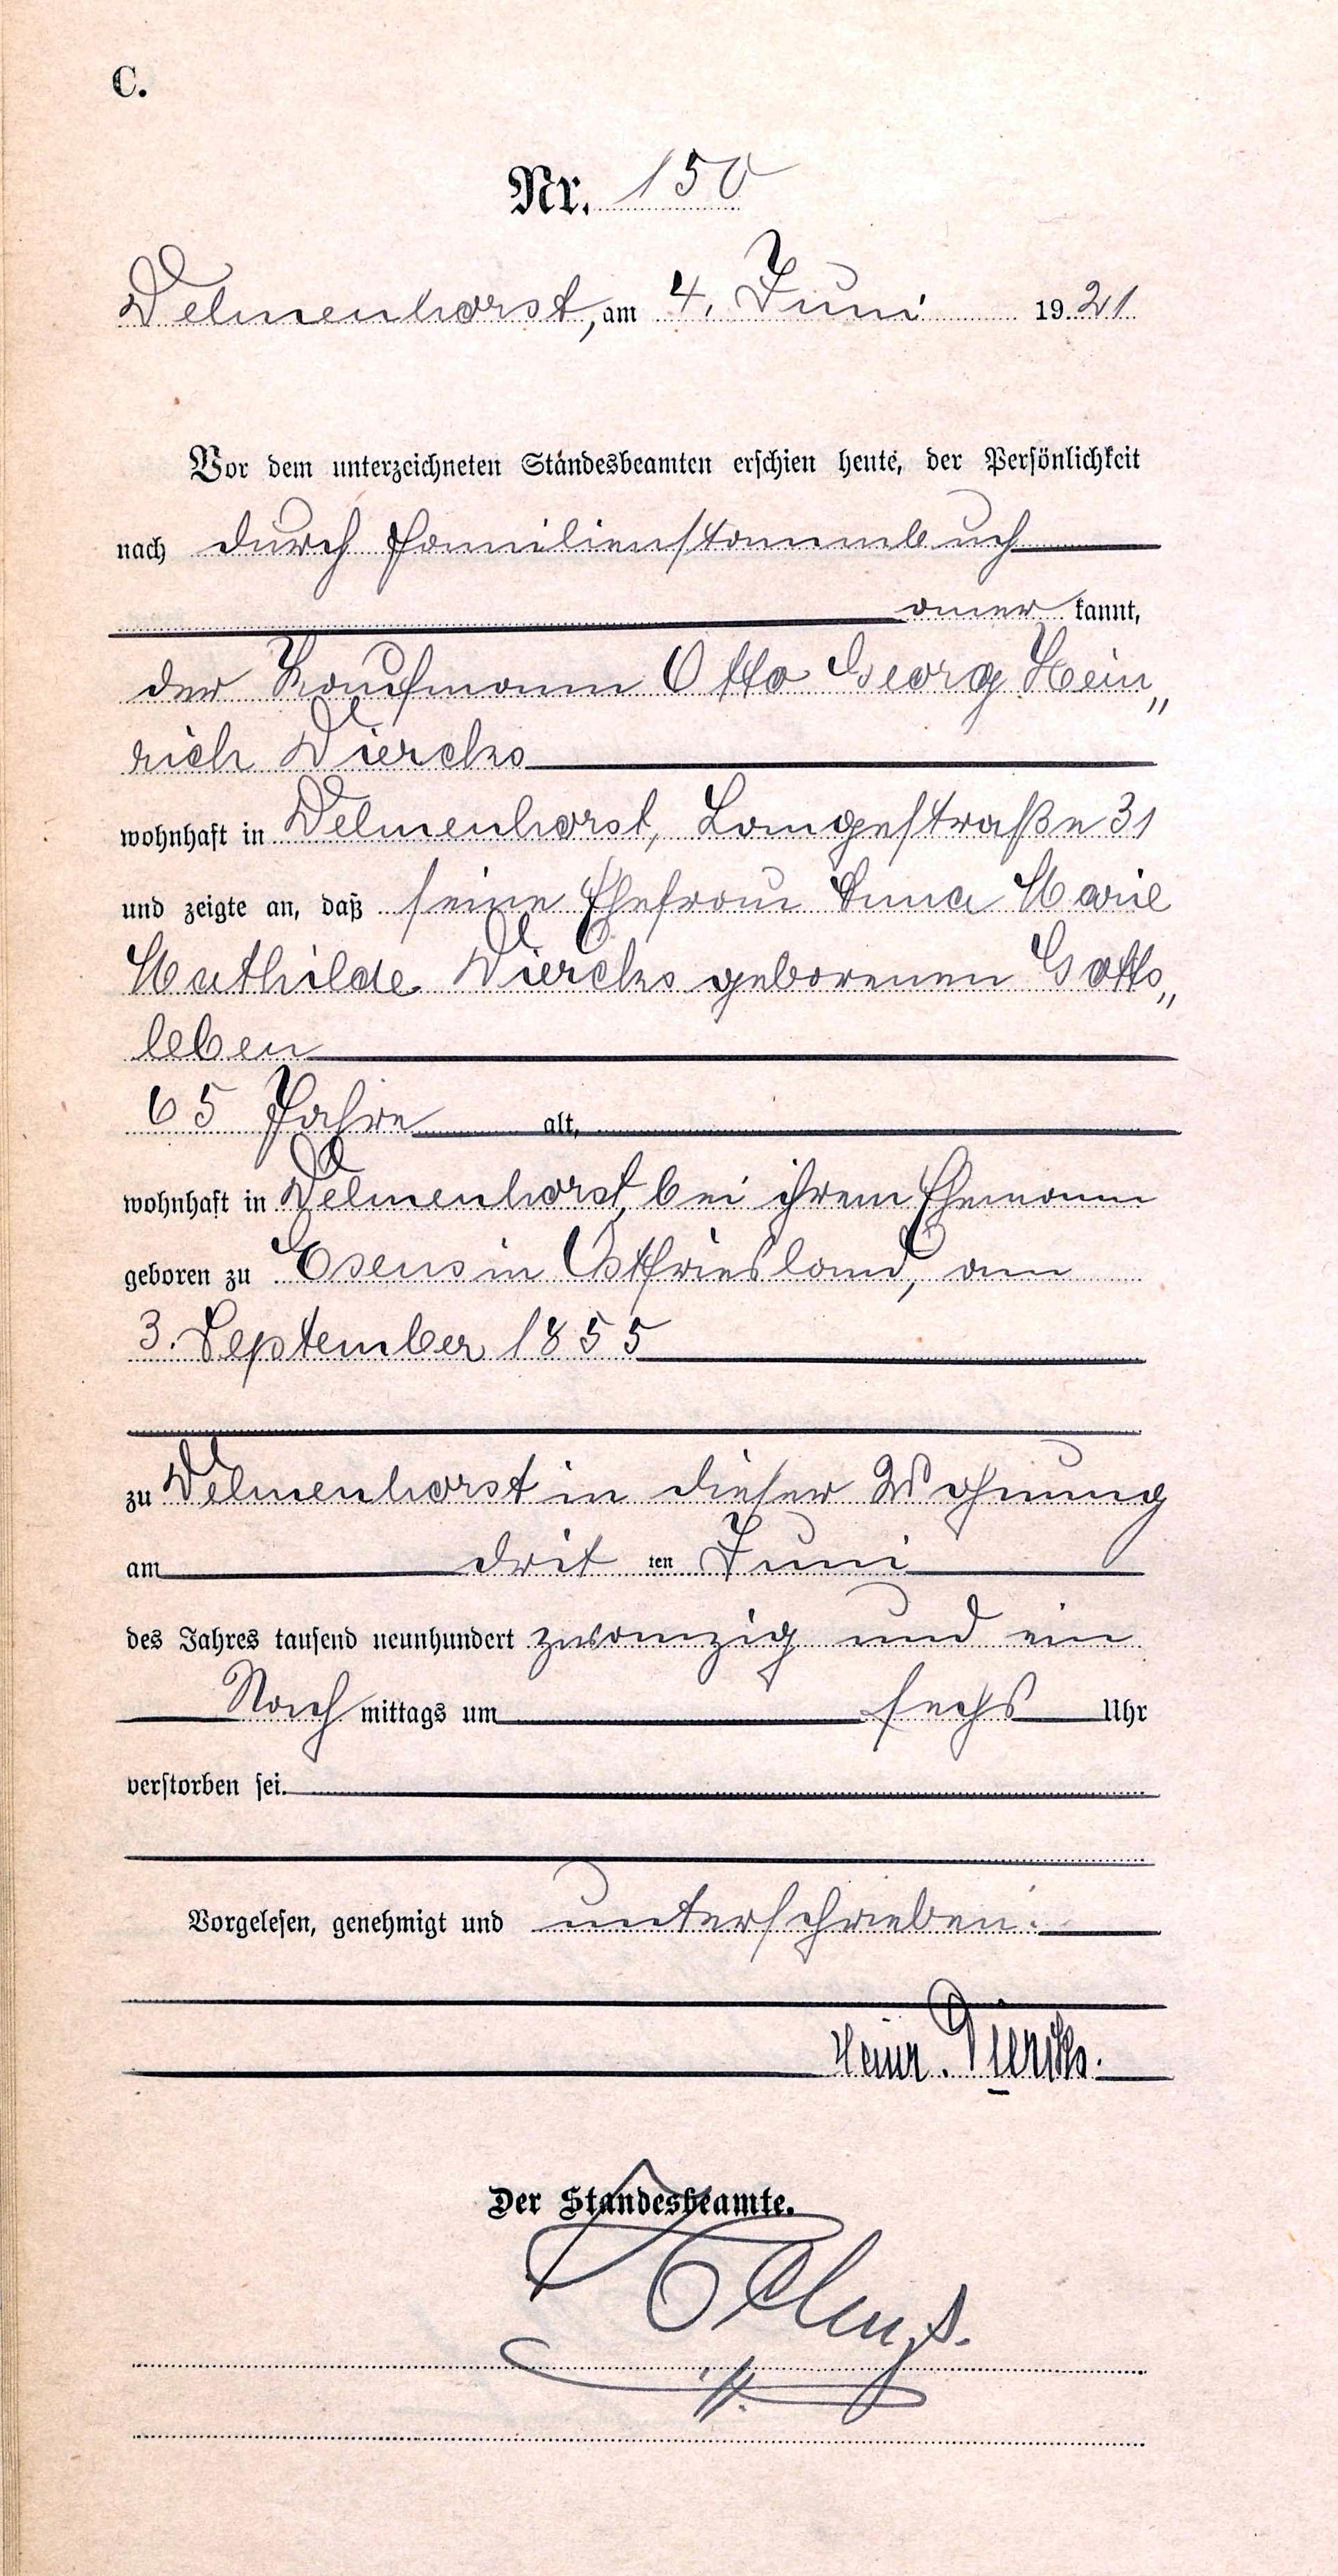 C.
Nr. 150
Delmenhorst, am 4. Juni 1921
Vor dem unterzeichneten Standesbeamten erschien heute, der Persönlichkeit
nach durch Familienstammbuch
aner kannt,
der Kaufmann Otto Georg Hein„
rich Diercks
wohnhaft in Delmenhorst, Langestraße 31
und zeigte an, daß seine Ehefrau Anna Marie
Mathilde Diercks geborenen Gotts„
leben
65 Jahre alt,
wohnhaft in Delmenhorst, bei ihrem Ehemann
geboren zu Esens in Ostfriesland, am
3. September 1855
zu Delmenhorst in dieser Wohnung
am drit ten Juni
des Jahres tausend neunhundert zwanzig und ein
Nach mittags um sechs Uhr
verstorben sei.
Vorgelesen, genehmigt und unterschrieben.
Heinr. Diercks.
Der Standesbeamte.